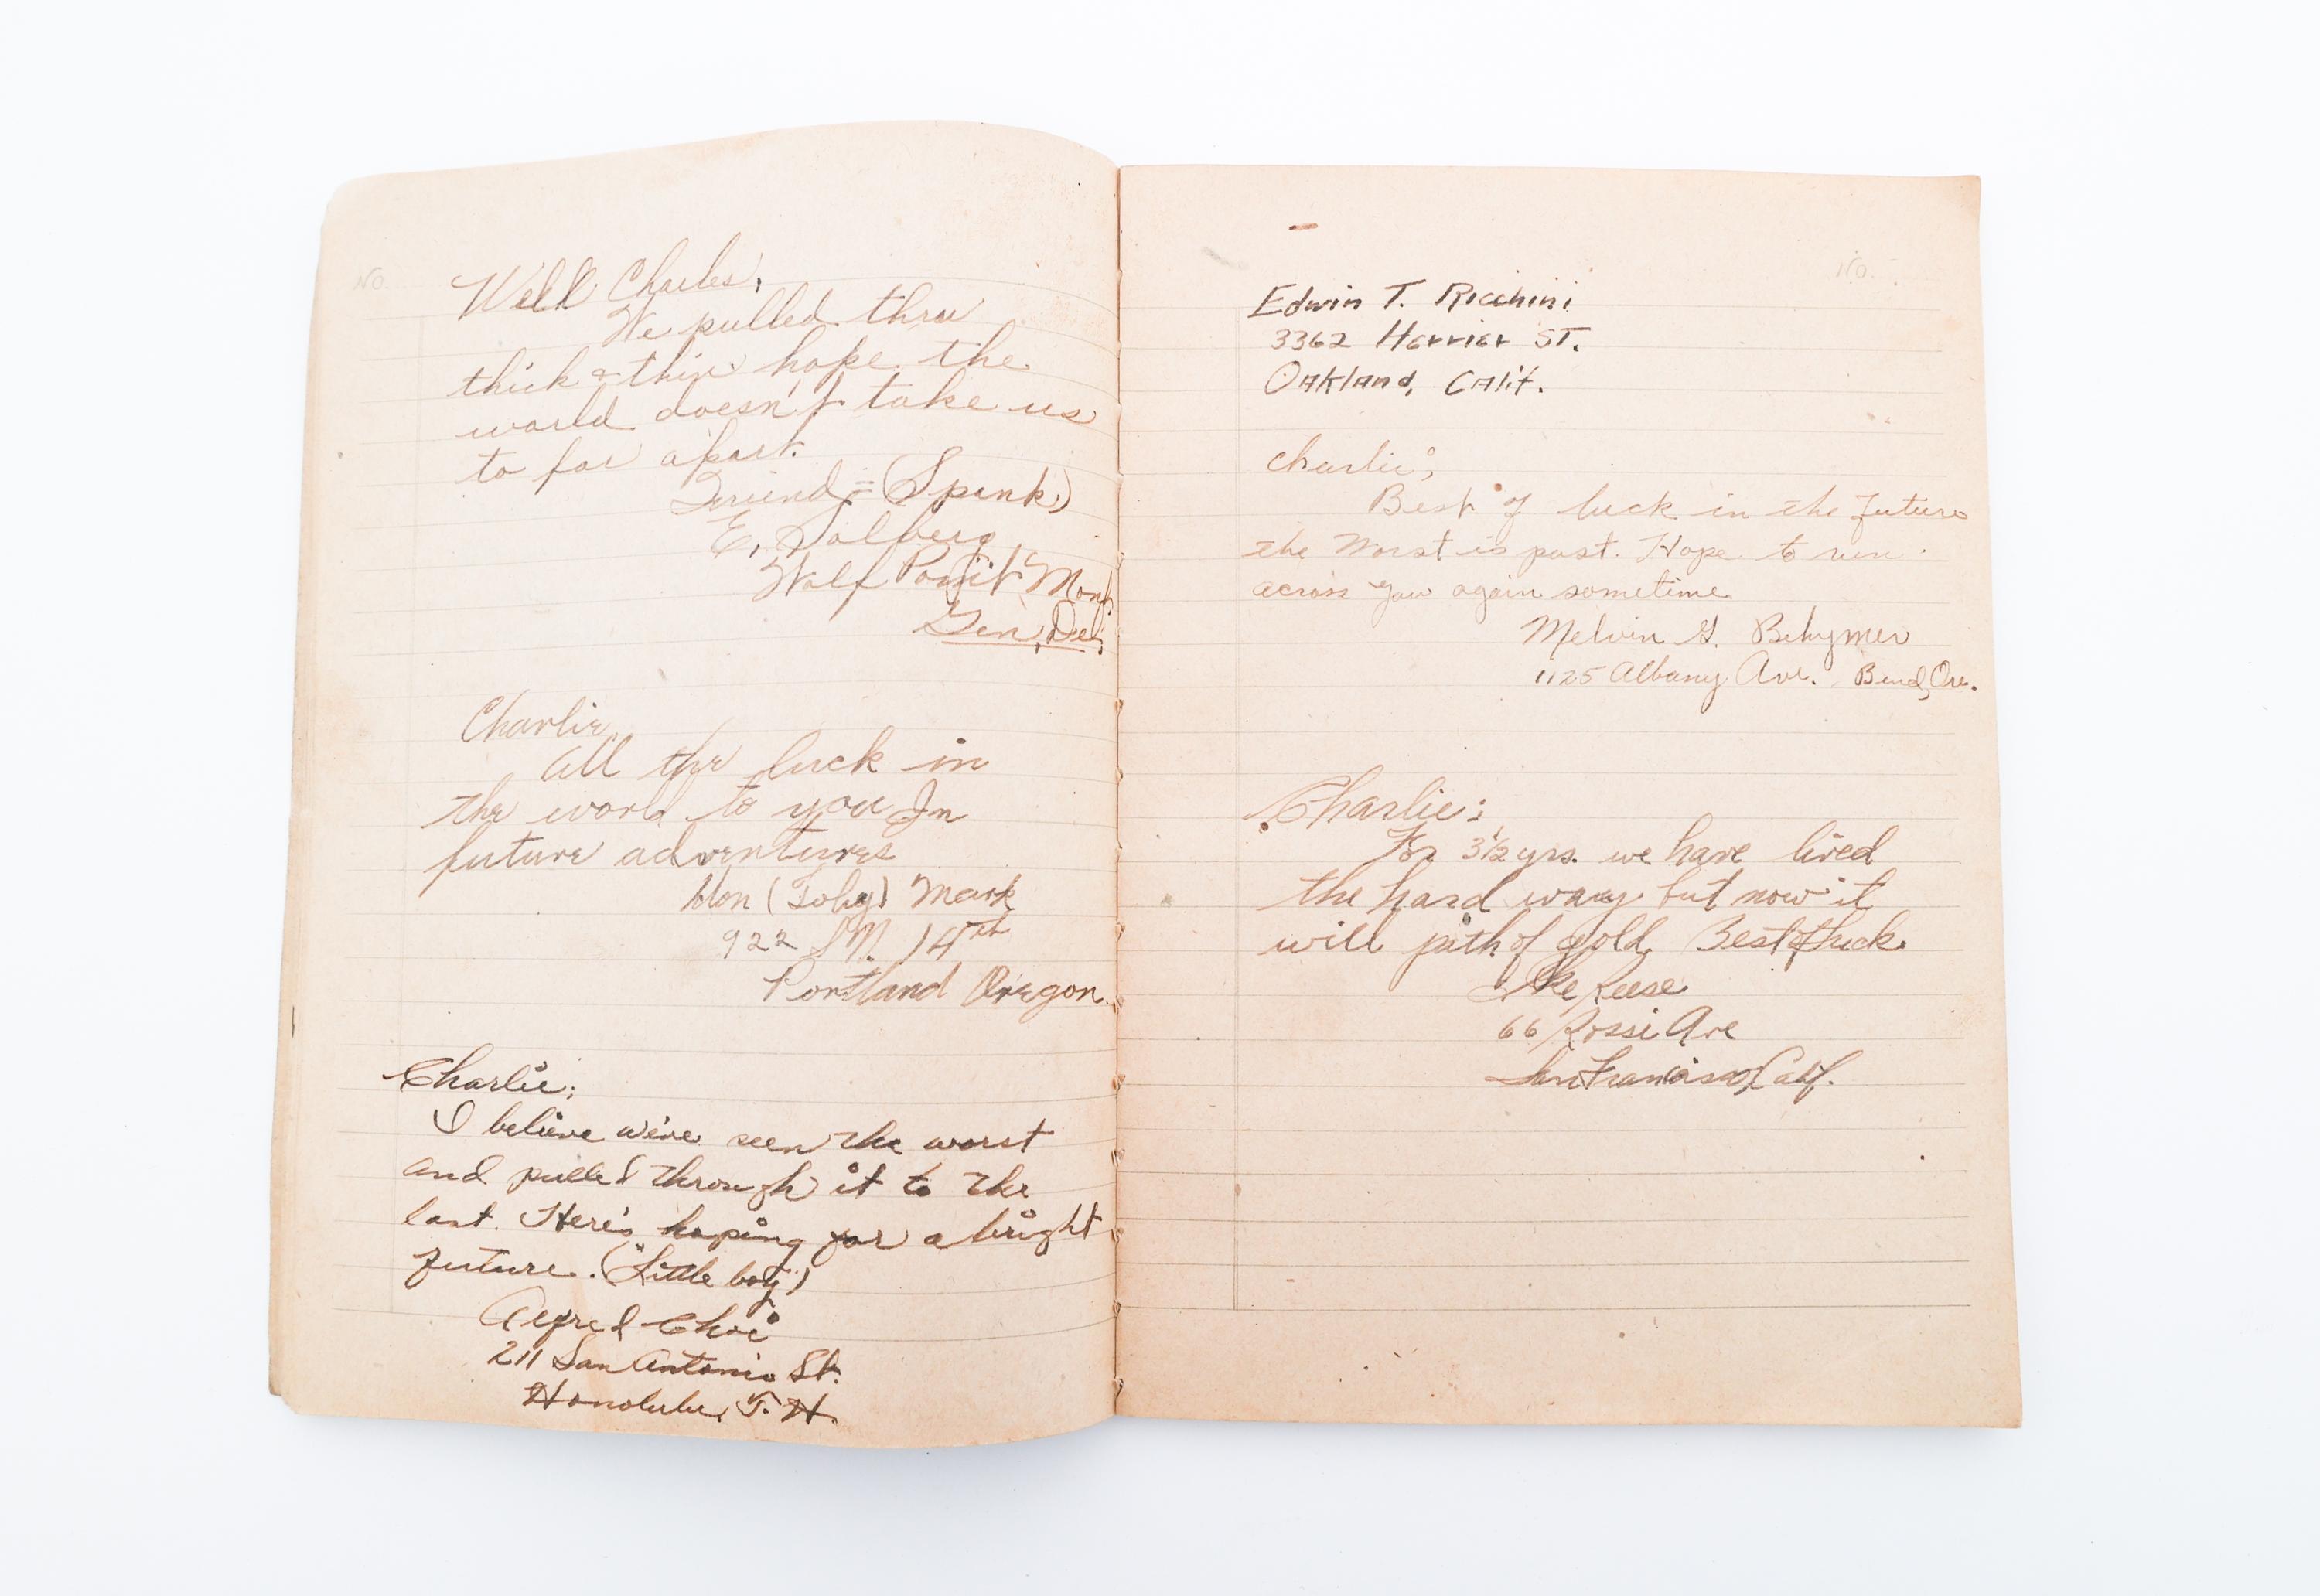 No.
Well Charles,
We pulled thru
thick & thin hope the
world doesn't take us
to far apart.
Friend = (Spink)
E. Solberg
Wolf Point Mont.
Gen, Del,
Charlie
All the luck in
the world to you In
future adventures
(Toby) Mark
922 14th
Portland Oregon.
Charlie;
I believe we've seen the worst
and pulled through it to the
last. Here's hoping for a bright
future. ("Little boy")
Alfred Choi
211 San Antonio St.
Honolulu, T. H.
No.
Edwin T. Ricchini
3362 Harrier ST.
Oakland, Calif.
Charlie;
Best of luck in the future
the worst is past. Hope to run
across you again sometime
Melvin G. Behymer
1125 Albany Ave. Bend, Ore.
Charlie;
For 3 1/2 yrs. we have lived
the hard way but now it
will path of gold, Best of luck.
Ike Reese
66 Rossi Ave
San Francisco, Calif.